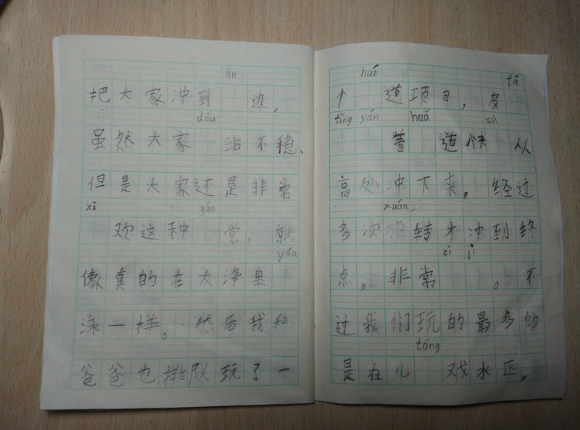 àn
把大家冲到 边，
dōu
虽然大家 站不稳，
但是大家还是非常
xǐ gǎn
欢这种 觉，就
yóu
像真的在大海里
泳一样。然后我和
爸爸也排队玩了一
huá tā
个 道项目，皮
tǐng yán huá cù
着 道快 从
高处冲下来，经过
xuán
多次 转才冲到终
cì jī
点。非常 。不
过我们玩的最多的
tóng
是在儿 戏水区，